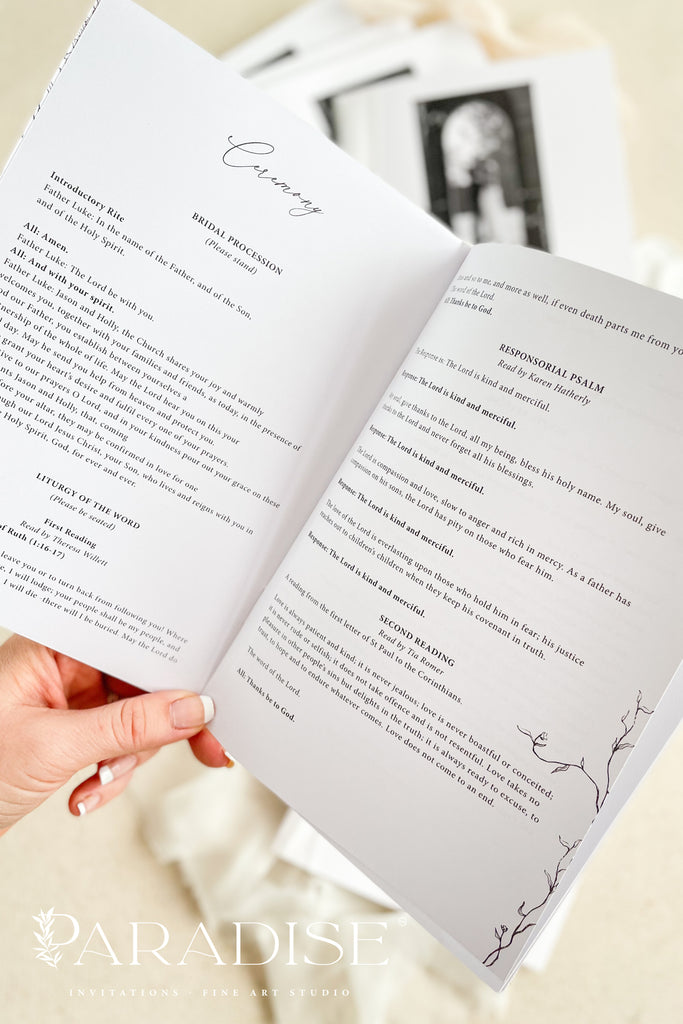 Ceremony
BRIDAL PROCESSION
(Please stand)
Introductory Rite
Father Luke: In the name of the Father, and of the Son,
and of the Holy Spirit.
All: Amen.
Father Luke: The Lord be with you.
All: And with your spirit.
Father Luke: Jason and Holly, the Church shares your joy and warmly
welcomes you, together with your families and friends, as today, in the presence of
our Father, you establish between yourselves a
of the whole of life. May the Lord hear you on this your
day. May he send you help from heaven and protect you.
grant your heart's desire and fulfil every one of your prayers.
to our prayers O Lord, and in your kindness pour out your grace on these
Jason and Holly, that, coming
your altar, they may be confirmed in love for one
our Lord Jesus Christ, your Son, who lives and reigns with you in
Holy Spirit, God, for ever and ever.
LITURGY OF THE WORD
(Please be seated)
First Reading
Read by Theresa Willett
of Ruth (1:16-17)
leave you or to turn back from following you! Where
I will lodge; your people shall be my people, and
I will die -there will I be buried. May the Lord do
and so to me, and more as well, if even death parts me from
The word of the Lord.
All: Thanks be to God.
RESPONSORIAL PSALM
Read by Karen Hatherly
The Response is: The Lord is kind and merciful.
Response: The Lord is kind and merciful.
My soul, give thanks to the Lord, all my being, bless his holy name. My soul, give
thanks to the Lord and never forget all his blessings.
Response: The Lord is kind and merciful.
The Lord is compassion and love, slow to anger and rich in mercy. As a father has
compassion on his sons, the Lord has pity on those who fear him.
Response: The Lord is kind and merciful.
The love of the Lord is everlasting upon those who hold him in fear; his justice
reaches out to children's children when they keep his covenant in truth.
Response: The Lord is kind and merciful.
SECOND READING
Read by Tia Romer
A reading from the first letter of St Paul to the Corinthians.
Love is always patient and kind; it is never jealous; love is never boastful or conceited;
it is never rude or selfish; it does not take offence and is not resentful. Love takes no
pleasure in other people's sins but delights in the truth; it is always ready to excuse, to
trust, to hope and to endure whatever comes. Love does not come to an end.
The word of the Lord.
All: Thanks be to God.
PARADISE
INVITATIONS · FINE ART STUDIO